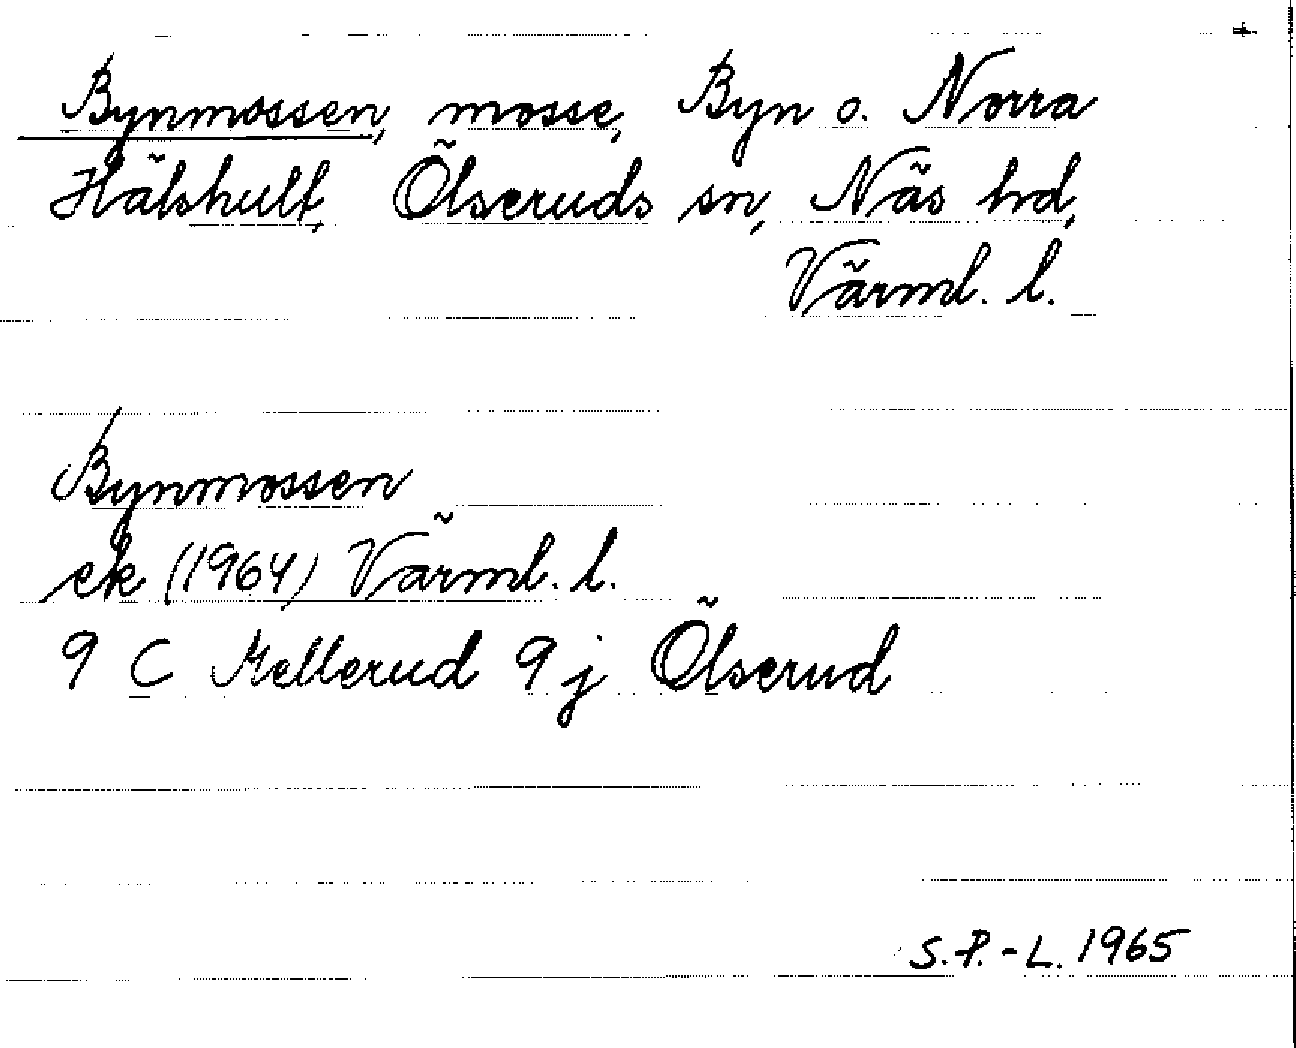 Bynmossen, mosse, Byn o. Norra
Hälshult, Ölseruds sn, Näs hd,
Värml. l.
Bynmossen
ek (1964) Värml. l.
9 C Mellerud 9 j Ölserud
S.P.-L. 1965